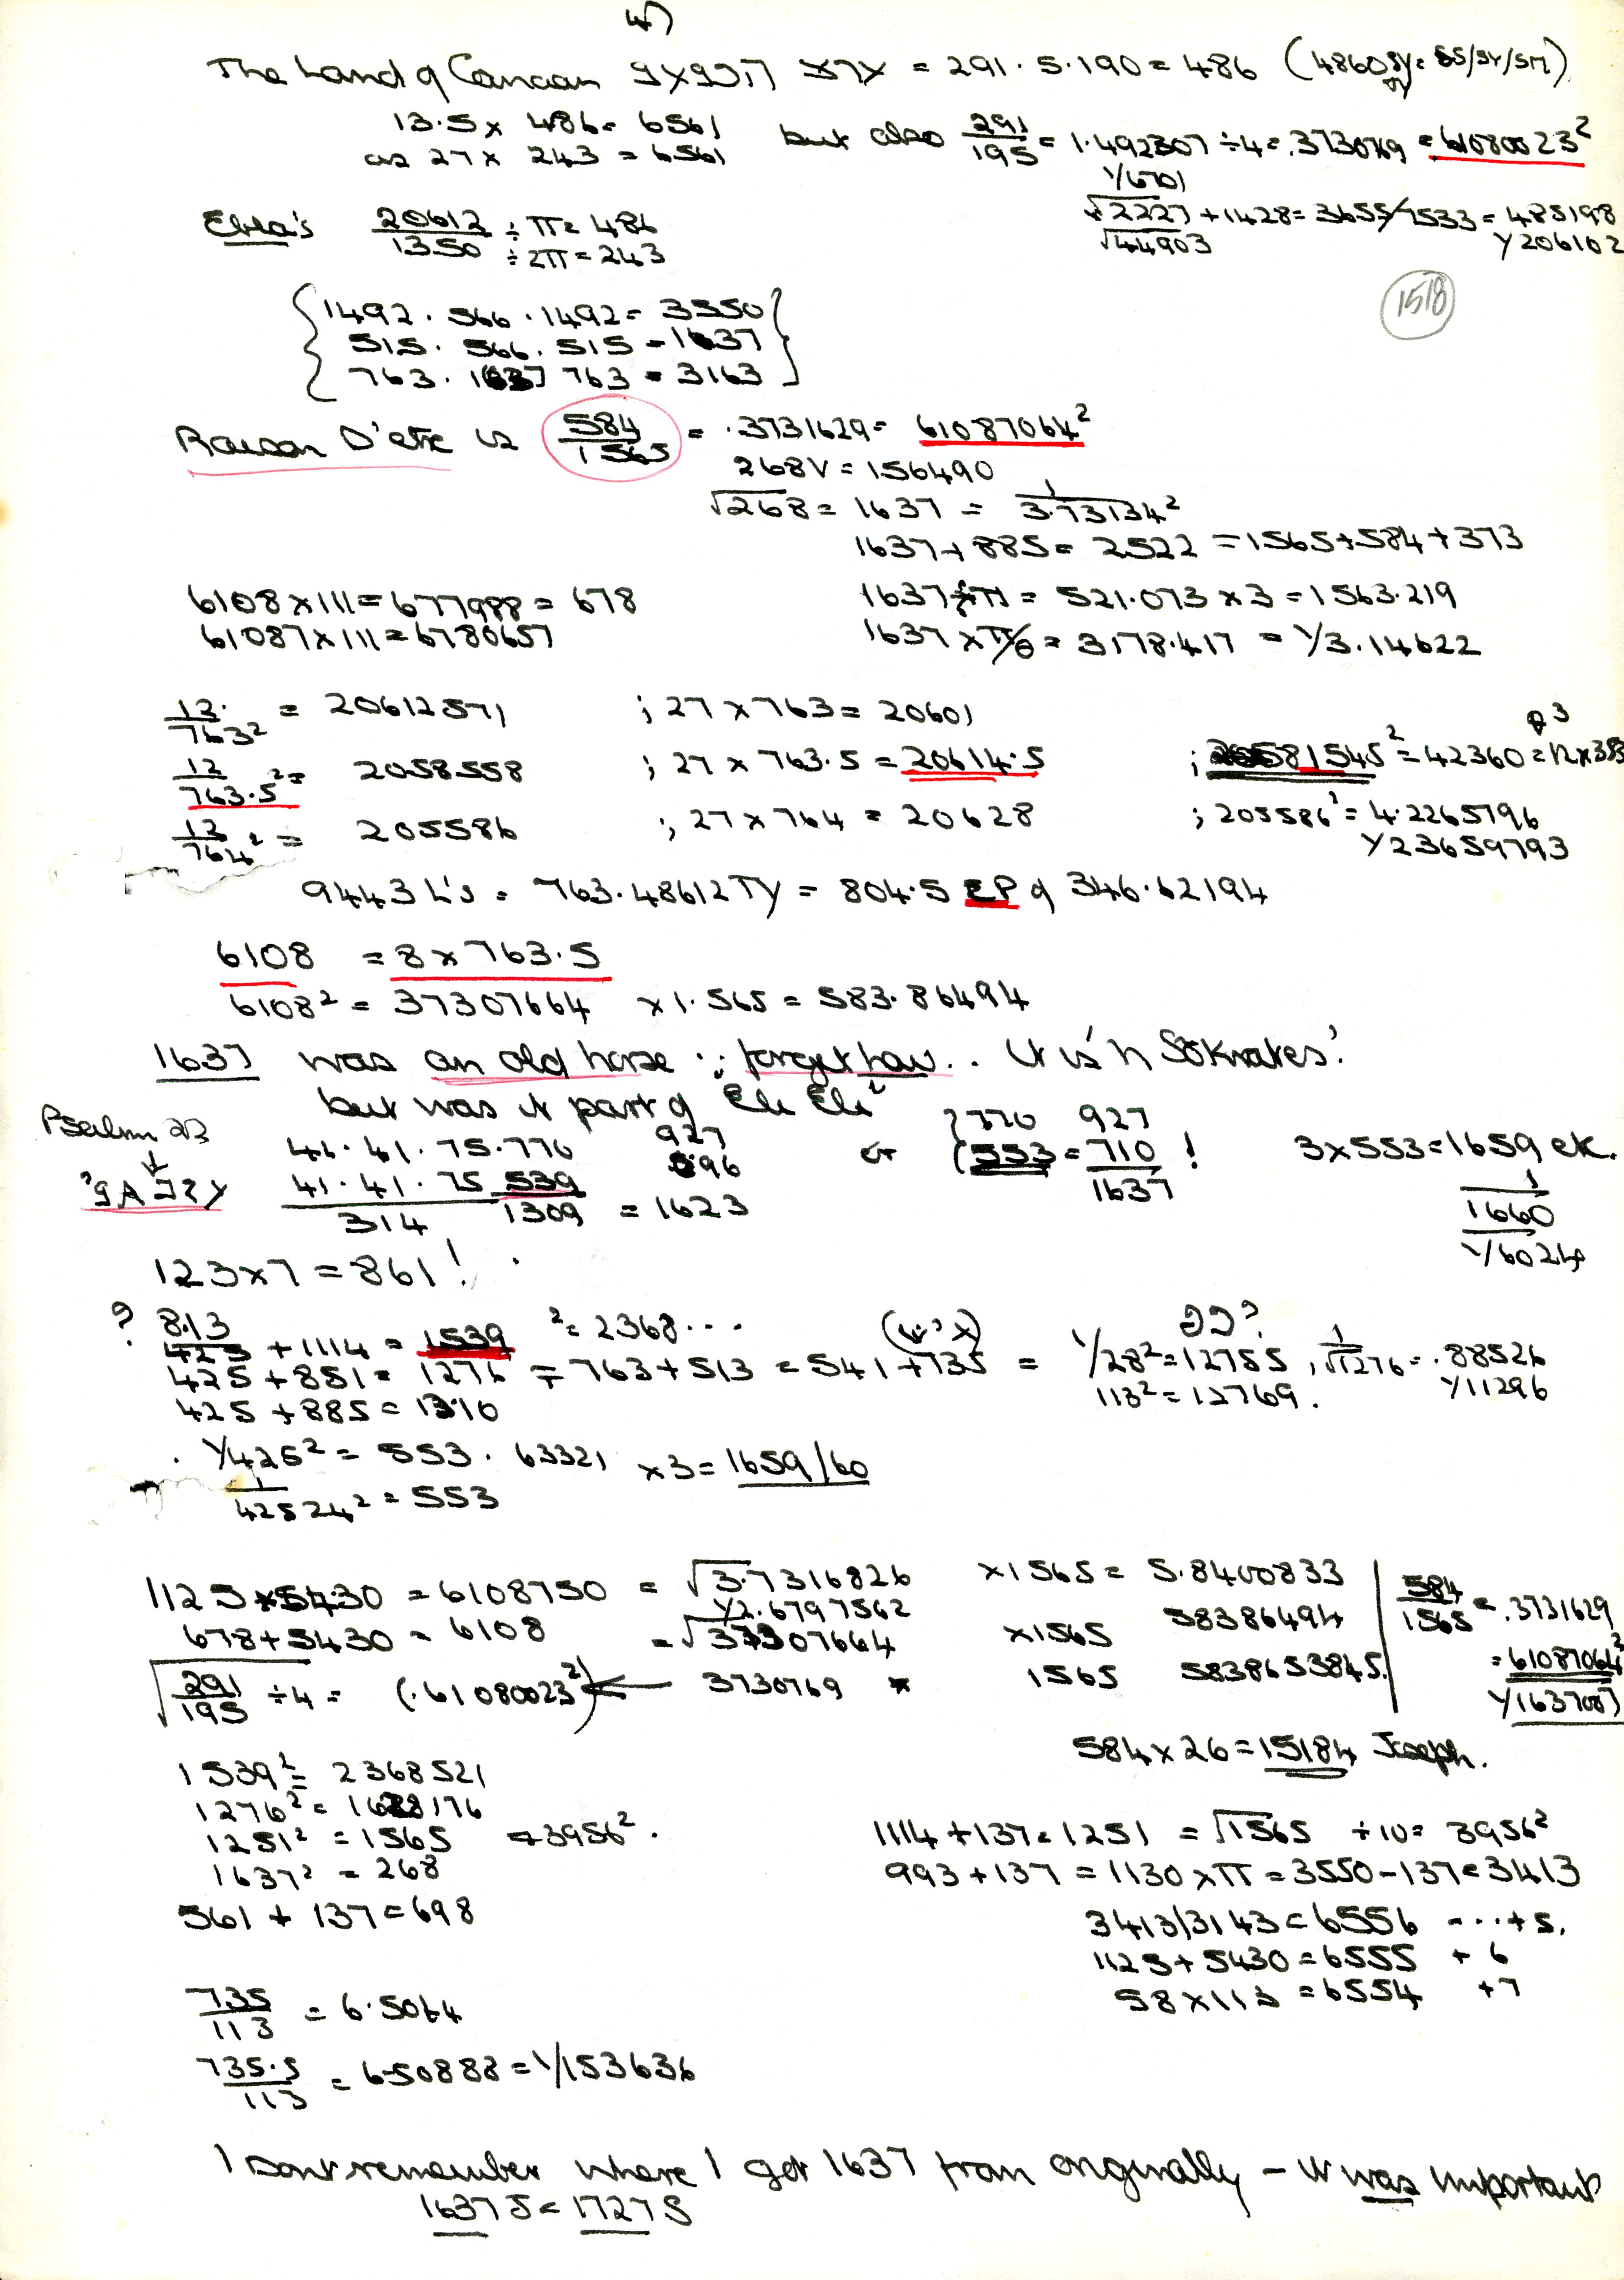 47
The Land of Canaan = 291 . 5 . 190 = 486
13.5 x 486 = 6561 but also 291/195 = 1.492307 ÷ 4 = .373079 = 61080023²
as 27 x 243 = 6561
1/6701
√2227 + 1428 = 3655/7533 = 485198
√44903 1/206102
Ebla's 20612/1350 ÷ π = 486
÷ 2π = 243
1518
1492 . 566 . 1492 = 3550
515 . 566 . 515 = 1637
763 . 1637 763 = 3163
Raison D'etre is 584/1565 = .3731629 = 61087064²
268V = 156490
√268 = 1637 = 1/3.73134²
1637 + 885 = 2522 = 1565 + 584 + 373
6108 x 111 = 677988 = 678
61087 x 111 = 6780657
1637 ÷ π = 521.073 x 3 = 1563.219
1637 x π/θ = 3178.417 = 1/3.14622
12/763² = 20612571 ; 27 x 763 = 20601
12/763.5² = 2058558 ; 27 x 763.5 = 20614.5
12/764² = 205586 ; 27 x 764 = 20628 ; 205586² = 4.2265796
1/23659793
9443 L's = 763.48612 TY = 804.5 EP of 346.62194
6108 = 8 x 763.5
6108² = 37307664 x 1.565 = 583.86494
1637 was an old horse : forget how .. It is 'n Sokrates'.
but was it part of Eli Eli
Psalm 22
41 . 41 . 75 . 770 927
41 . 41 . 75 539 696
314 1309 = 1623
or 770 927
553 = 710 !
1637
3 x 553 = 1659 etc.
1/1660
1/6024
123 x 7 = 861 !
? 8.13
425 + 1114 = 1539 ² = 2368 ...
425 + 851 = 1276 = 763 + 513 = 541 + 735 = 1/28² = 12755 , 1/√1276 = .88526
113² = 12769 . 1/11296
425 + 885 = 1310
1/425² = 553 . 63321 x 3 = 1659/60
1/42524² = 553
1125 x 5430 = 6108750 = √3.7316826 x 1565 = 5.8400833
1/2.6797562
678 + 5430 = 6108 = √37307664 x 1565 58386494
√291/195 ÷ 4 = (.61080023²) ← 3730769 x 1565 5838653845.
584/1565 = .3731629
= 61087064²
1/1637007
584 x 26 = 15184 Joseph.
1539² = 2368521
1276² = 1628176
1251² = 1565 → 3956² .
1637² = 268
561 + 137 = 698
1114 + 137 = 1251 = √1565 ÷ 10 = 3956²
993 + 137 = 1130 x π = 3550 - 137 = 3413
3413/3143 = 6556 ... + 5.
1125 + 5430 = 6555 + 6
58 x 113 = 6554 + 7
735/113 = 6.5044
735.5/113 = 6.50888 = 1/153636
I dont remember where I got 1637 from originally - it was important
1637 5 = 1727 5